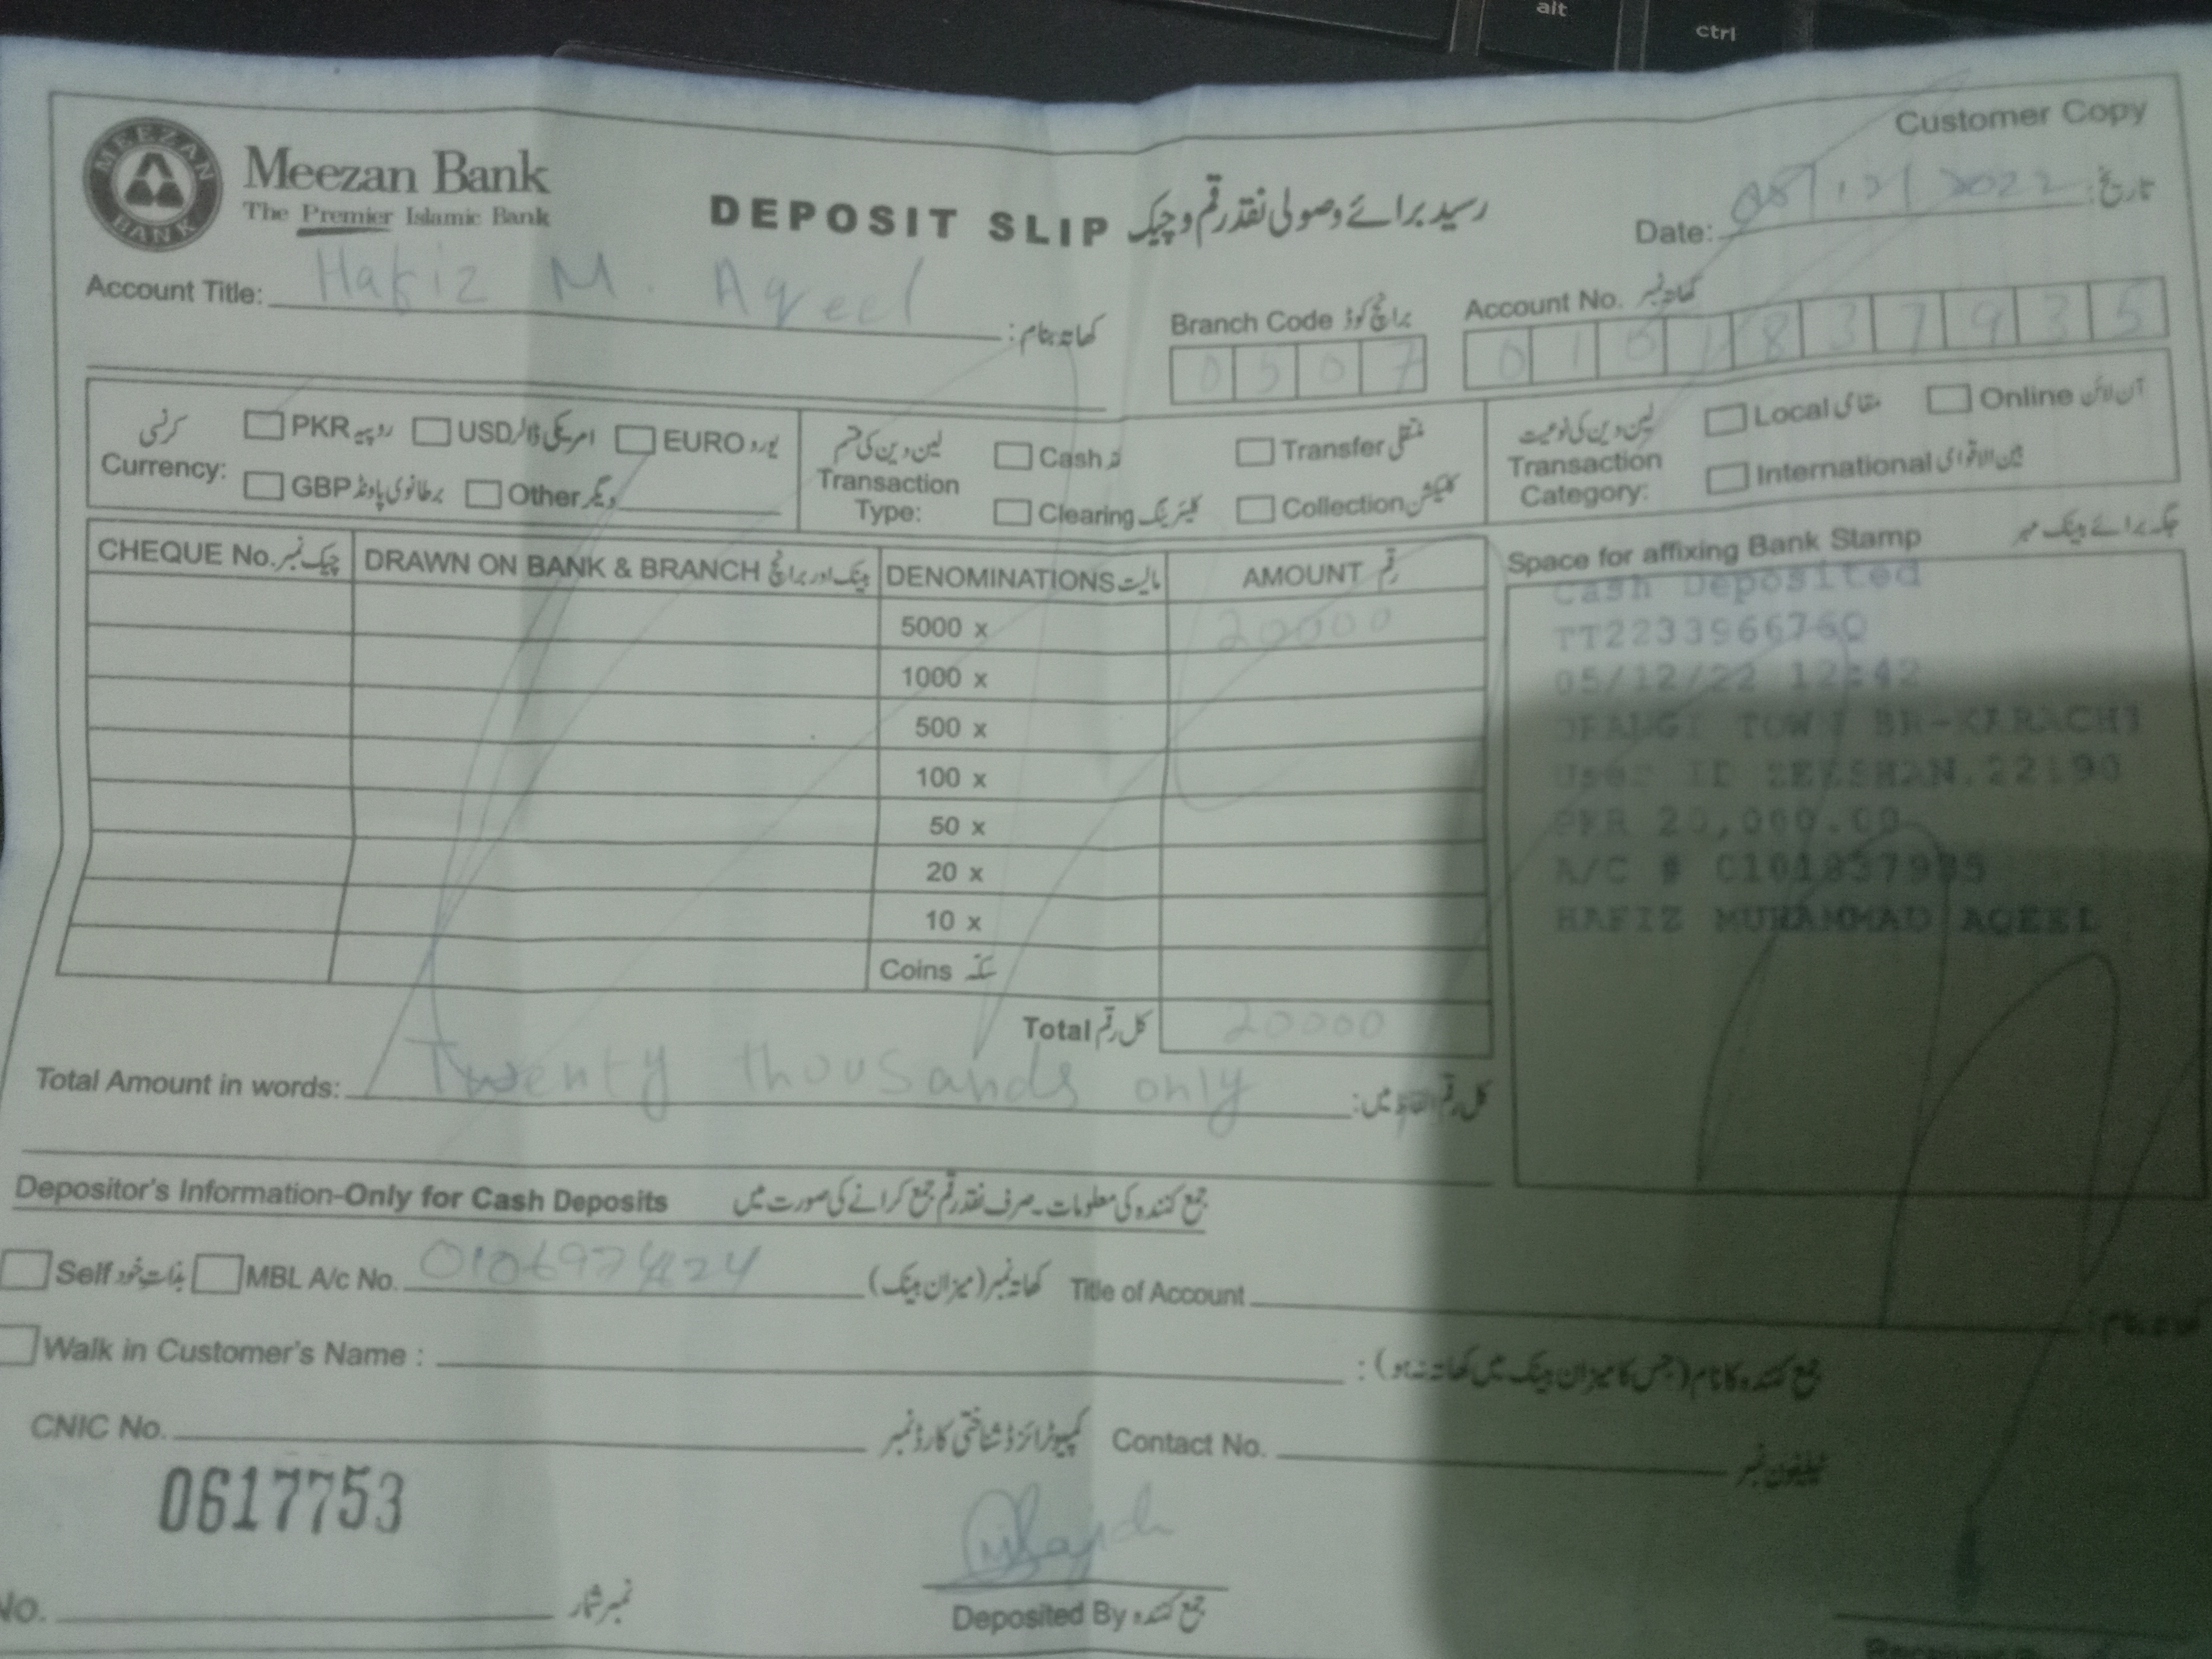 alt
ctrl
Customer Copy
MEEZAN BANK
Meezan Bank
The Premier Islamic Bank
DEPOSIT SLIP رسید برائے وصولی نقد رقم و چیک
Date: 05/12/2022 تاریخ:
Account Title: Hafiz M. Aqeel کھاتہ بنام:
Branch Code برانچ کوڈ
Account No. کھاتہ نمبر
0507
0101837935
کرنسی
Currency:
PKR روپیہ USD امریکی ڈالر EURO یورو
GBP برطانوی پاونڈ Other دیگر
لین دین کی قسم
Transaction Type:
Cash نقد Transfer منتقلی
Clearing کلیئرنگ Collection کلیکشن
لین دین کی نوعیت
Transaction Category:
Local مقامی Online آن لائن
International بین الاقوامی
CHEQUE No. چیک نمبر DRAWN ON BANK & BRANCH بینک اور برانچ DENOMINATIONS مالیت AMOUNT رقم
5000 x 20000
1000 x
500 x
100 x
50 x
20 x
10 x
Coins سکے
Total کل رقم 20000
Space for affixing Bank Stamp جگہ برائے بینک مہر
Cash Deposited
TT223396676Q
05/12/22 12:42
TOWN BR-KARACHI
User ID ZEESHAN.22190
PKR 20,000.00
A/C #
HAFIZ MUHAMMAD AQEEL
Total Amount in words: Twenty thousands only کل رقم الفاظ میں:
Depositor's Information-Only for Cash Deposits جمع کنندہ کی معلومات۔صرف نقد رقم جمع کرانے کی صورت میں
Self بذات خود MBL A/c No. کھاتہ نمبر (میزان بینک) Title of Account
Walk in Customer's Name : جمع کنندہ کا نام (جس کا میزان بینک میں کھاتہ نہ ہو) :
CNIC No. کمپیوٹرائزڈ شناختی کارڈ نمبر Contact No. ٹیلیفون نمبر
0617753
No. نمبر شمار
Deposited By جمع کنندہ